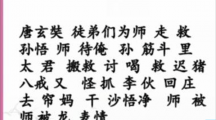 唐玄奘 徒弟们为师 走 救
孙悟 师 待俺 孙 筋斗 里
太君 搬救 讨 喝 救 迟猪
八戒 又 怪抓 李 伙 回庄
去 帘妈 干 沙悟净 师 被
师 被龙 表情